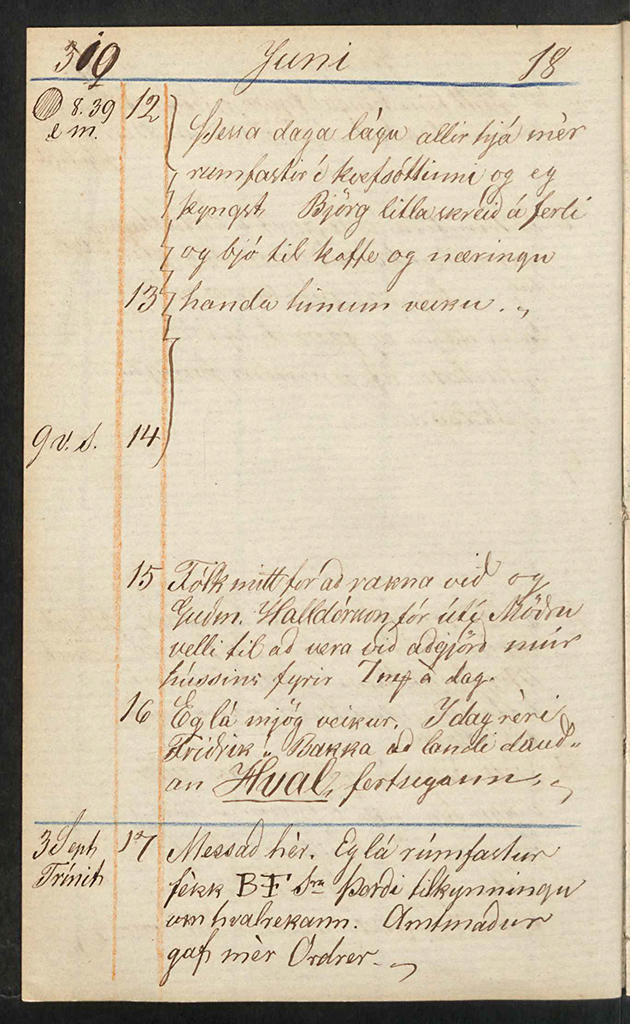 310 Juni 18
8.39 12
e m.
Þessa daga lágu allir hjá mèr
rumfastir í kvefsóttinni og eg
þyngst. Björg litla skreið á ferli
og bjó til kaffe og næringu
13 handa hinum veiku. "
9 v. s. 14
15 Fólk mitt for að rakna við og
Guðm. Halldórsson fór útí Möðru
velli til að vera við aðgjörð múr
hússins fyrir 7 à dag.
16 Eg lá mjög veikur. I dag rèri
Friðrik Bakka að landi dauð„
an Hval, fertugann. "
3 Seph 17 Messað hèr. Eg lá rúmfastur
Trinit fèkk BF Sra Þorði tilkynningu
um hvalrekann. Amtmaður
gaf mèr Ordrer. "